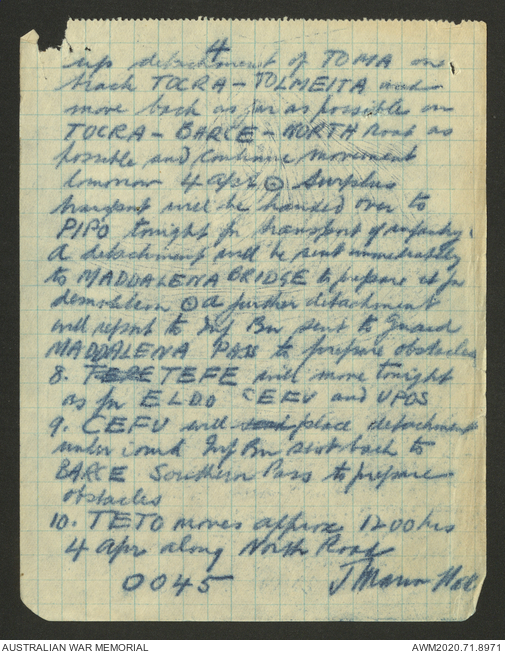 4
up detachment of TOMA on
track TOCRA - TOLMEITA and
move back as far as possible on
TOCRA - BARCE - NORTH Road as
possible and continue movement
tomorrow 4 Apl ⊙ Surplus
transport will be handed over to
PIPO tonight for transport of infantry.
A detachment will be sent immediately
to MADDALENA BRIDGE to prepare it for
demolition ⊙ a further detachment
will report to Inf Bn sent to Guard
MADDALENA PASS to prepare obstacles
8. TEFE will move tonight
as for ELDO CEFU and UPOS
9. CEFU will place detachment
under comd Inf Bn sent back to
BARCE Southern Pass to prepare
obstacles
10. TETO moves approx 1200 hrs
4 Apr along North Road
0045
AUSTRALIAN WAR MEMORIAL
AWM2020.71.8971